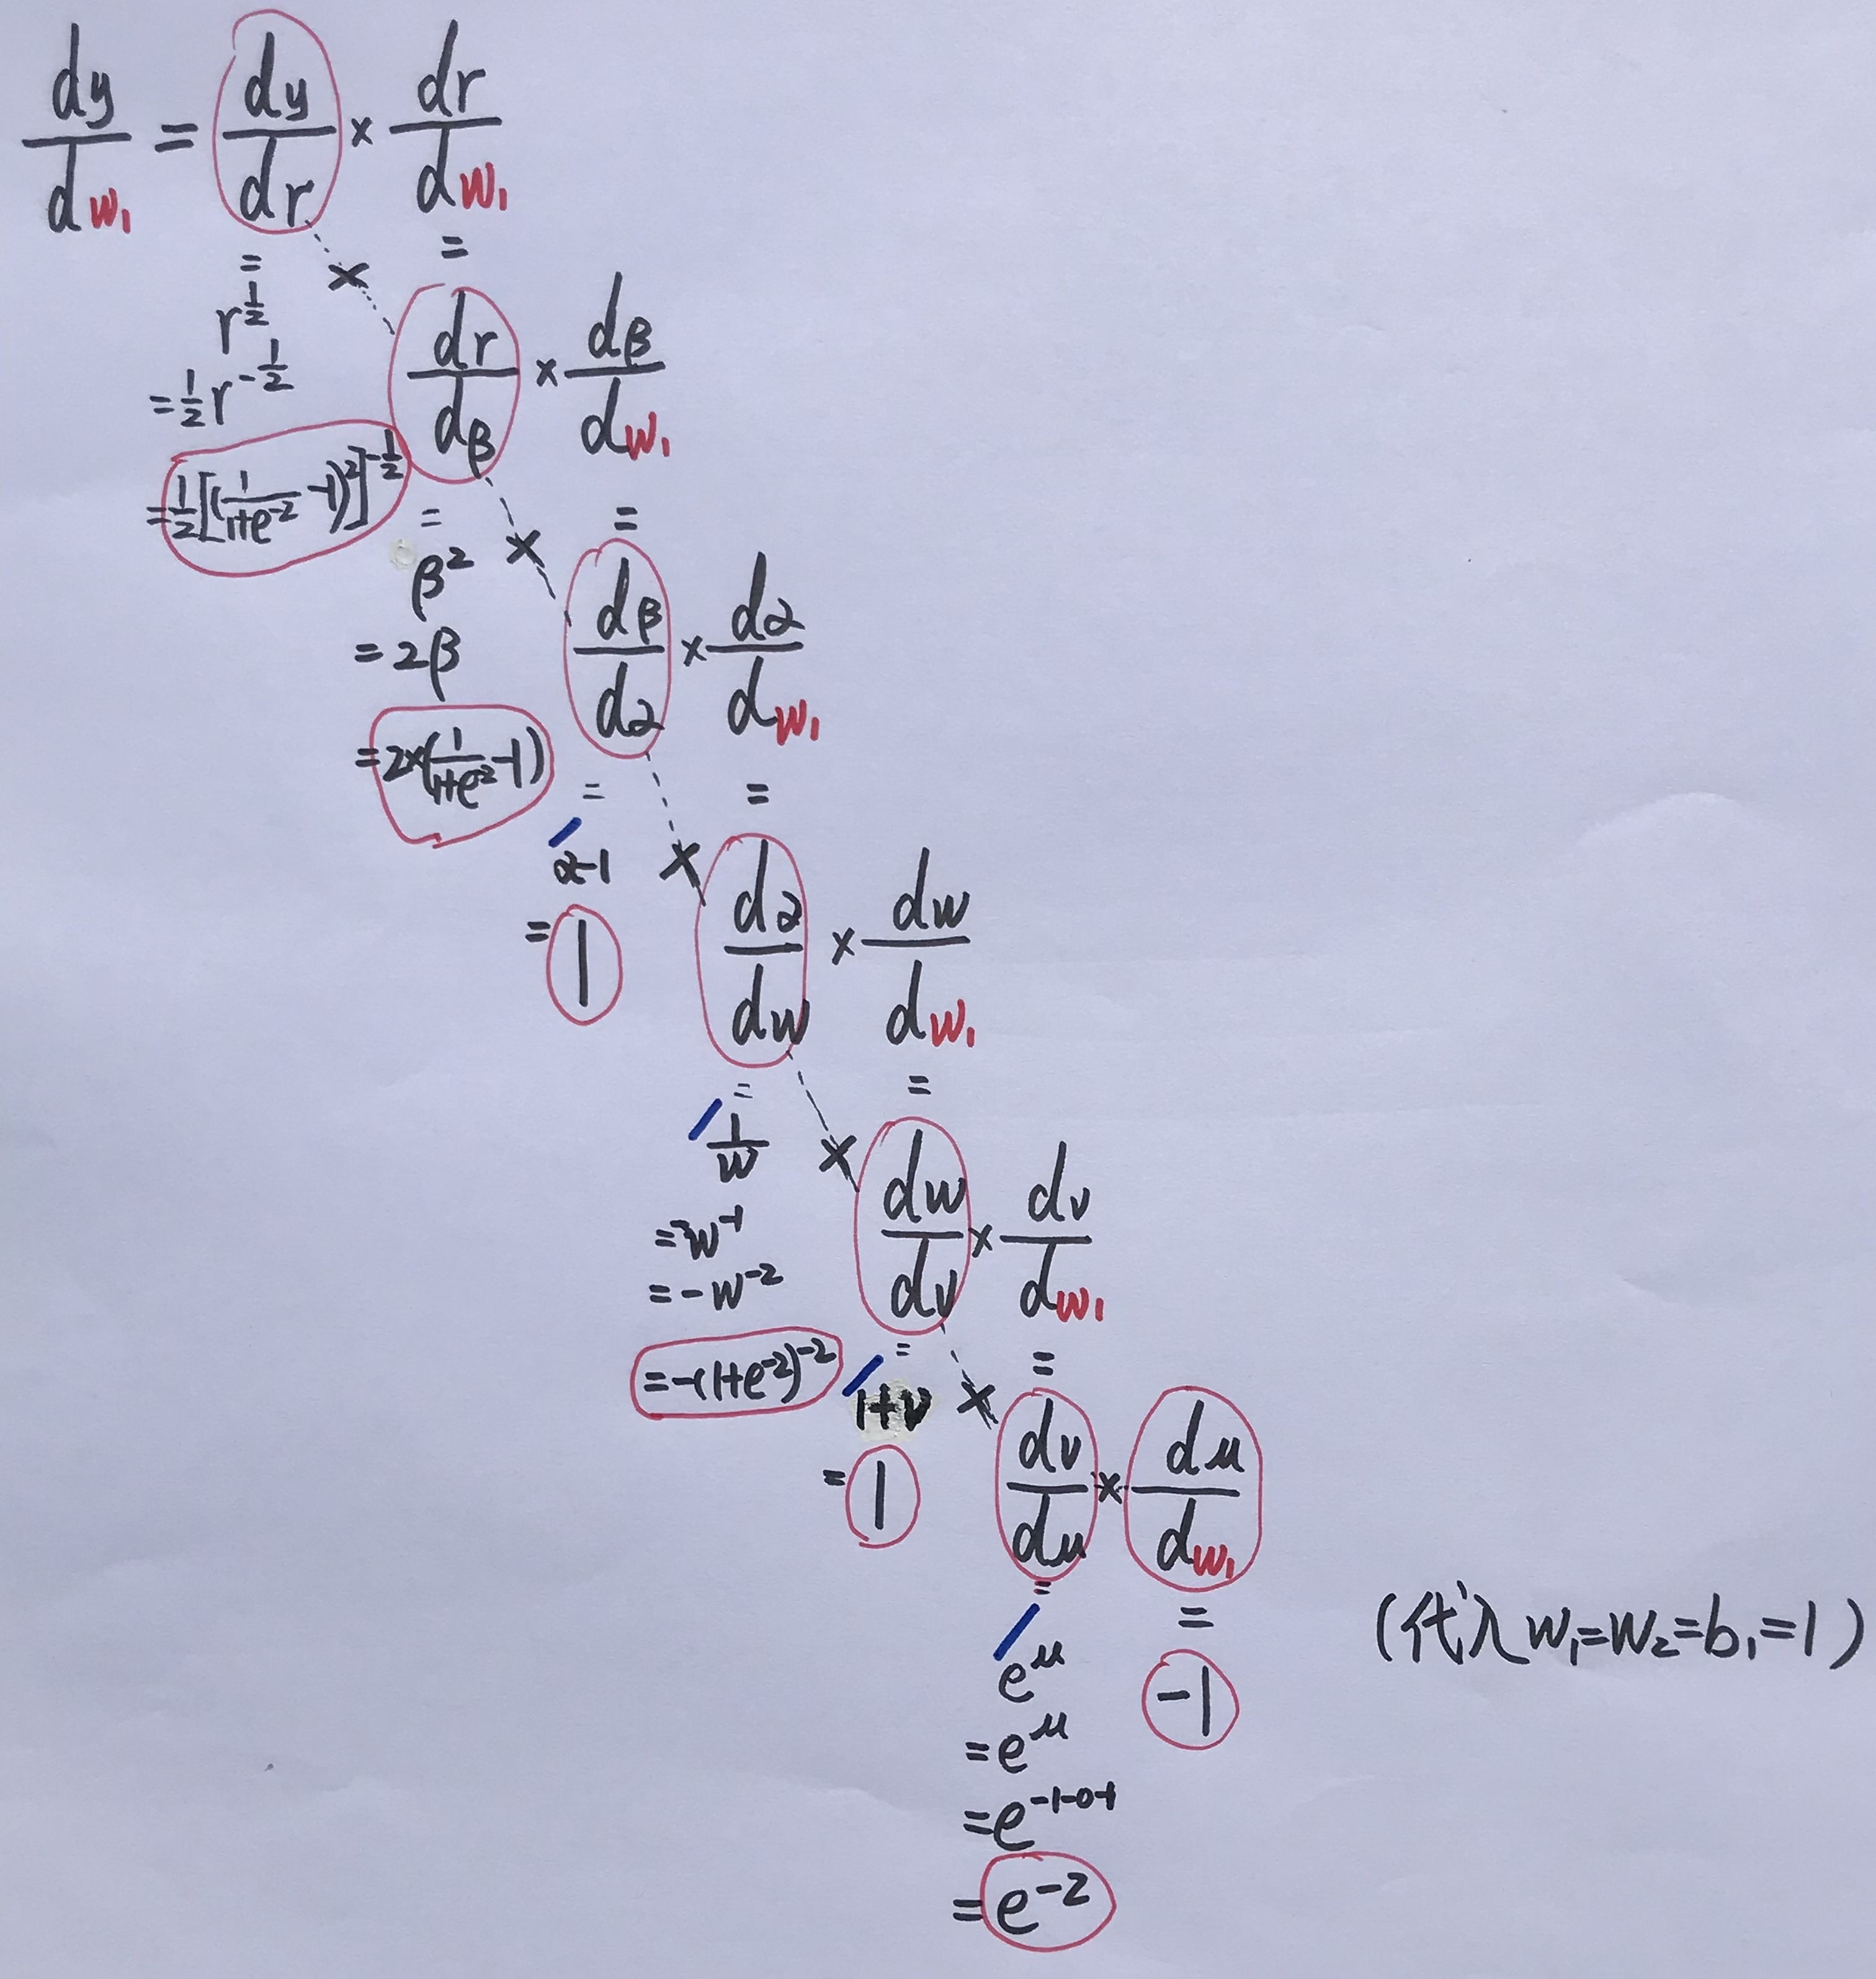 dy/dw₁ = dy/dr × dr/dw₁
=
r^½
= ½ r^-½
= ½[(1/(1+e^-2) -1)²]^-½
×
=
dr/dβ × dβ/dw₁
=
β²
= 2β
= 2×(1/(1+e^-2) -1)
×
=
dβ/dα × dα/dw₁
=
α-1
= 1
×
=
dα/dw × dw/dw₁
=
1/w
= w^-1
= -w^-2
= -(1+e^-2)^-2
×
=
dw/dv × dv/dw₁
=
1+v
= 1
×
=
dv/du × du/dw₁
=
e^u
= e^u
= e^-1-0-1
= e^-2
=
-1
(代入 w₁=w₂=b₁=1)